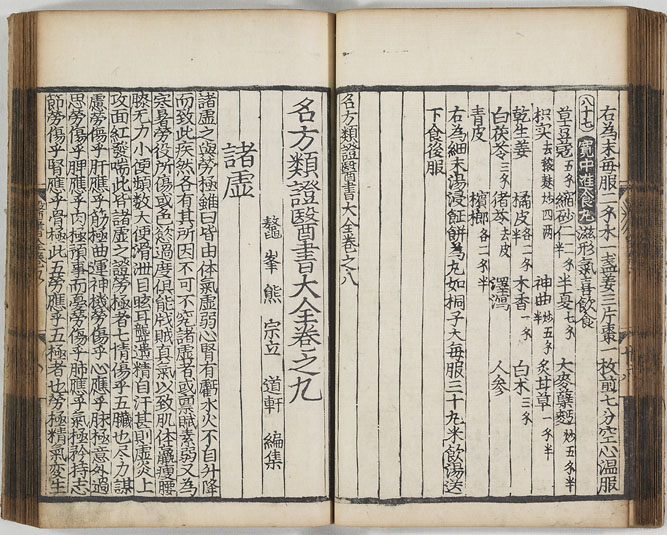 右為末每服二錢水一盞姜三片棗一枚前七分空心温服
八十七 寬中進食丸 滋形氣喜飲食
草豆蔻五錢 縮砂仁二錢半 半夏七錢 大麥蘗麪炒五錢半
枳实去穰麩炒四兩 神曲炒五錢半 炙甘草一錢半
乾生姜 橘皮各二錢 木香一錢 白朮三錢
白茯苓三錢 猪苓去皮 澤瀉 人參
青皮 檳榔各二錢半
右為細末湯浸飪餅為丸如桐子大每服三十丸米飲湯送
下食後服
名方類證醫書大全卷之八
名方類證醫書大全卷之九
鰲峯 熊 宗立 道軒 編集
諸虛
諸虛之證勞極雖曰皆由体氣虛弱心腎有虧水火不自升降
而致此疾然各有其所因不可不究諸虛者或稟賦素弱又為
寒暑勞役所傷或色慾過度俱能戕賊真氣以致肌体羸瘦腰
膝无力小便頻數大便滑泄目眩耳聾遺精自汗甚則虛炎上
攻面紅發喘此皆諸虛之證勞極者七情傷乎五臟也尽力謀
慮勞傷乎肝應乎筋極曲運神機勞傷乎心應乎脉極意外過
思勞傷乎脾應乎肉極預事而憂勞傷乎肺應乎氣極矜持志
節勞傷乎腎應乎骨極此五勞應乎五極者也勞極精氣变生